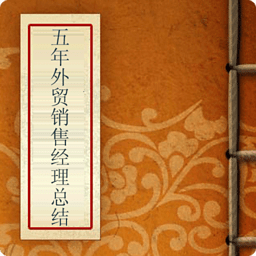 五年外贸销售经理总结